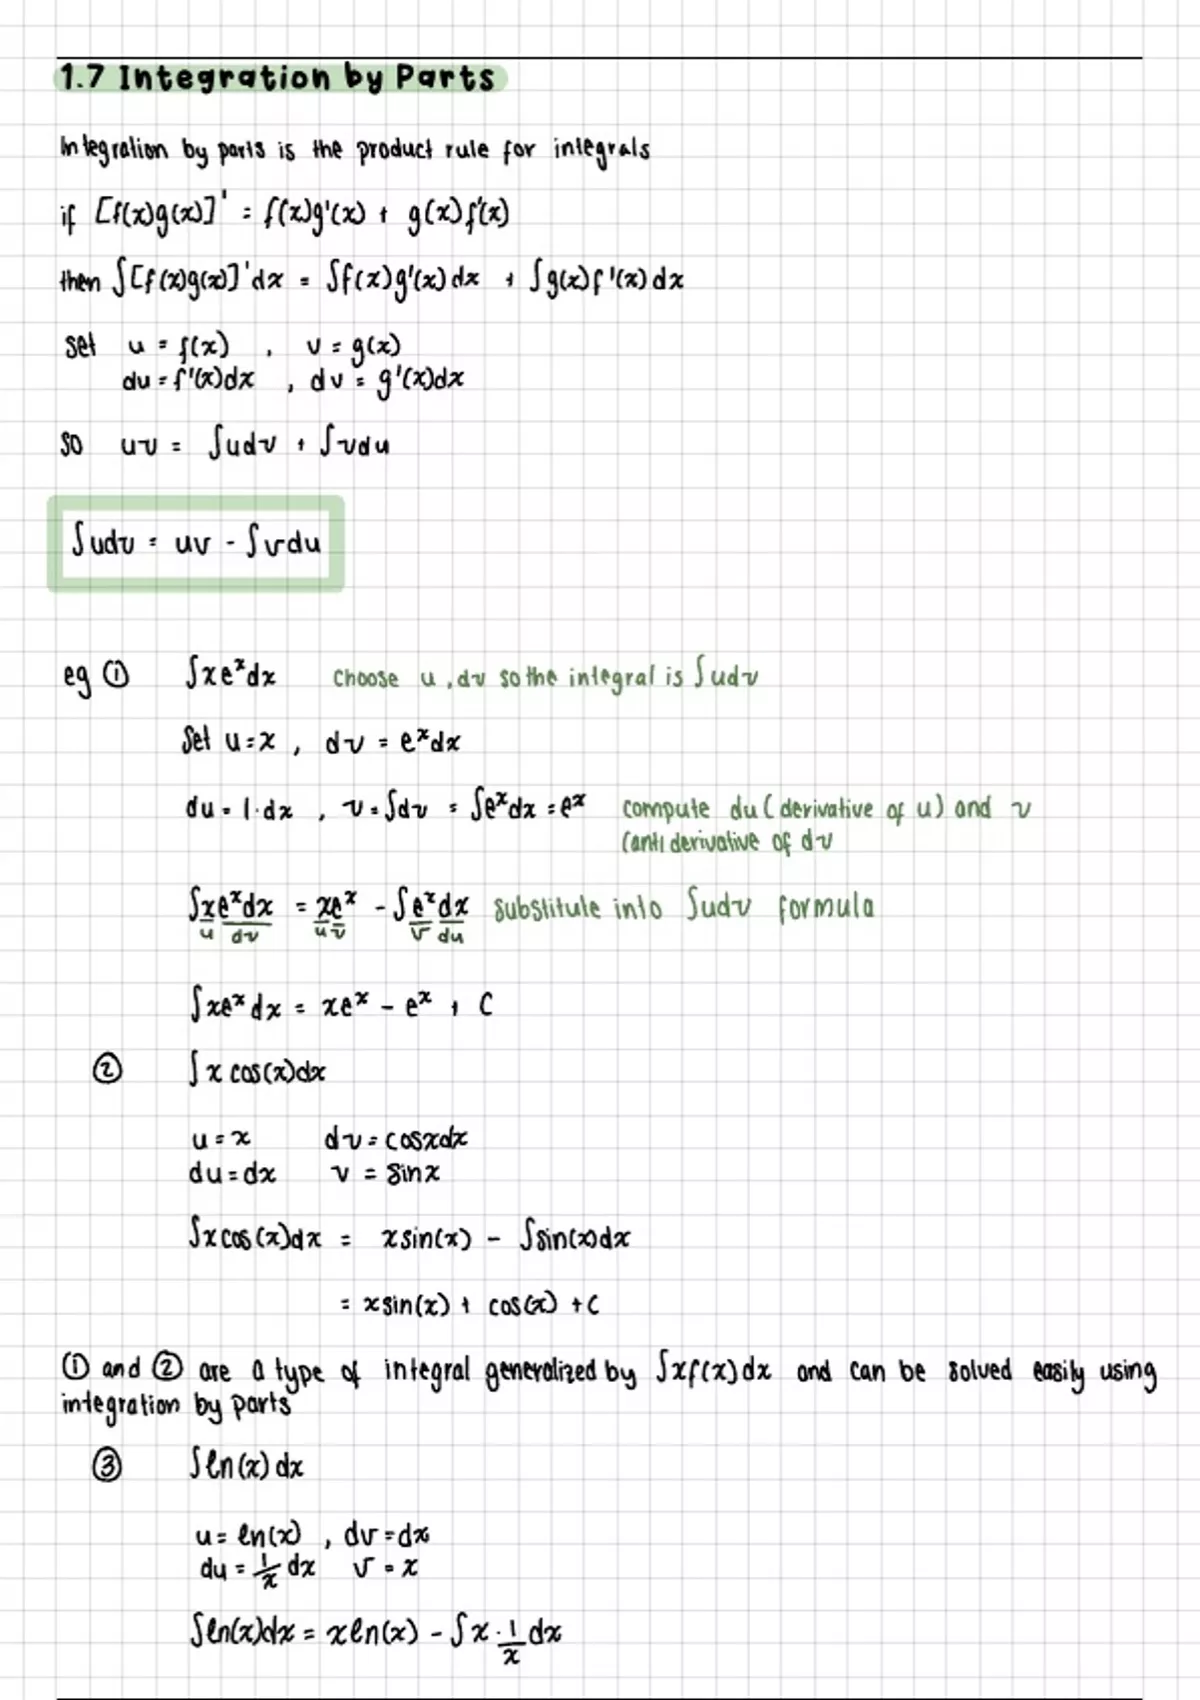 1.7 Integration by Parts
Integration by parts is the product rule for integrals
if [f(x)g(x)]' = f(x)g'(x) + g(x)f'(x)
then ∫[f(x)g(x)]'dx = ∫f(x)g'(x)dx + ∫g(x)f'(x)dx
set u = f(x) , v = g(x)
du = f'(x)dx , dv = g'(x)dx
so uv = ∫udv + ∫vdu
∫udv = uv - ∫vdu
eg ① ∫xeˣdx choose u, dv so the integral is ∫udv
Set u = x , dv = eˣdx
du = 1·dx , v = ∫dv = ∫eˣdx = eˣ compute du (derivative of u) and v
(anti derivative of dv
∫xeˣdx = xeˣ - ∫eˣdx substitute into ∫udv formula
u dv u v v du
∫xeˣdx = xeˣ - eˣ + C
② ∫x cos(x)dx
u = x dv = cosxdx
du = dx v = sinx
∫xcos(x)dx = xsin(x) - ∫sin(x)dx
= xsin(x) + cos(x) + C
① and ② are a type of integral generalized by ∫xf(x)dx and can be solved easily using
integration by parts
③ ∫ln(x)dx
u = ln(x) , dv = dx
du = 1/x dx v = x
∫ln(x)dx = xln(x) - ∫x · 1/x dx